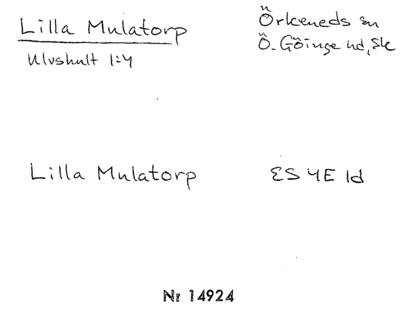 Lilla Mulatorp
Ulvshult 1:4
Örkeneds sn
Ö. Göinge hd, Sk
Lilla Mulatorp
ES 4E 1d
Nr 14924